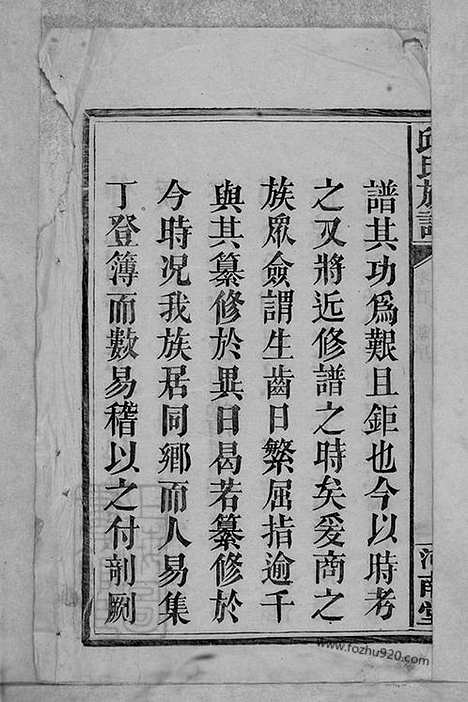 邱氏族譜
河南堂
譜其功爲艱且鉅也今以時考
之又將近修譜之時矣爰商之
族眾僉謂生齒日繁屈指逾千
與其纂修於異日曷若纂修於
今時况我族居同鄉而人易集
丁登簿而數易稽以之付剞劂
www.fozhu920.com